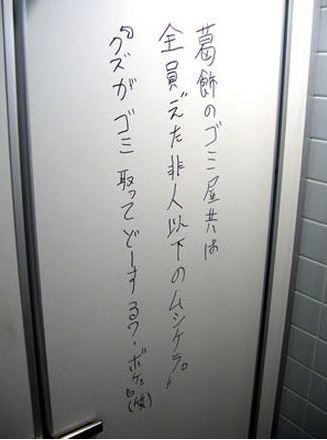 葛飾のゴミ屋共は
全員"えた非人以下のムシケラ。"
"クズがゴミ取ってどーするワ・ボケェ
(笑)